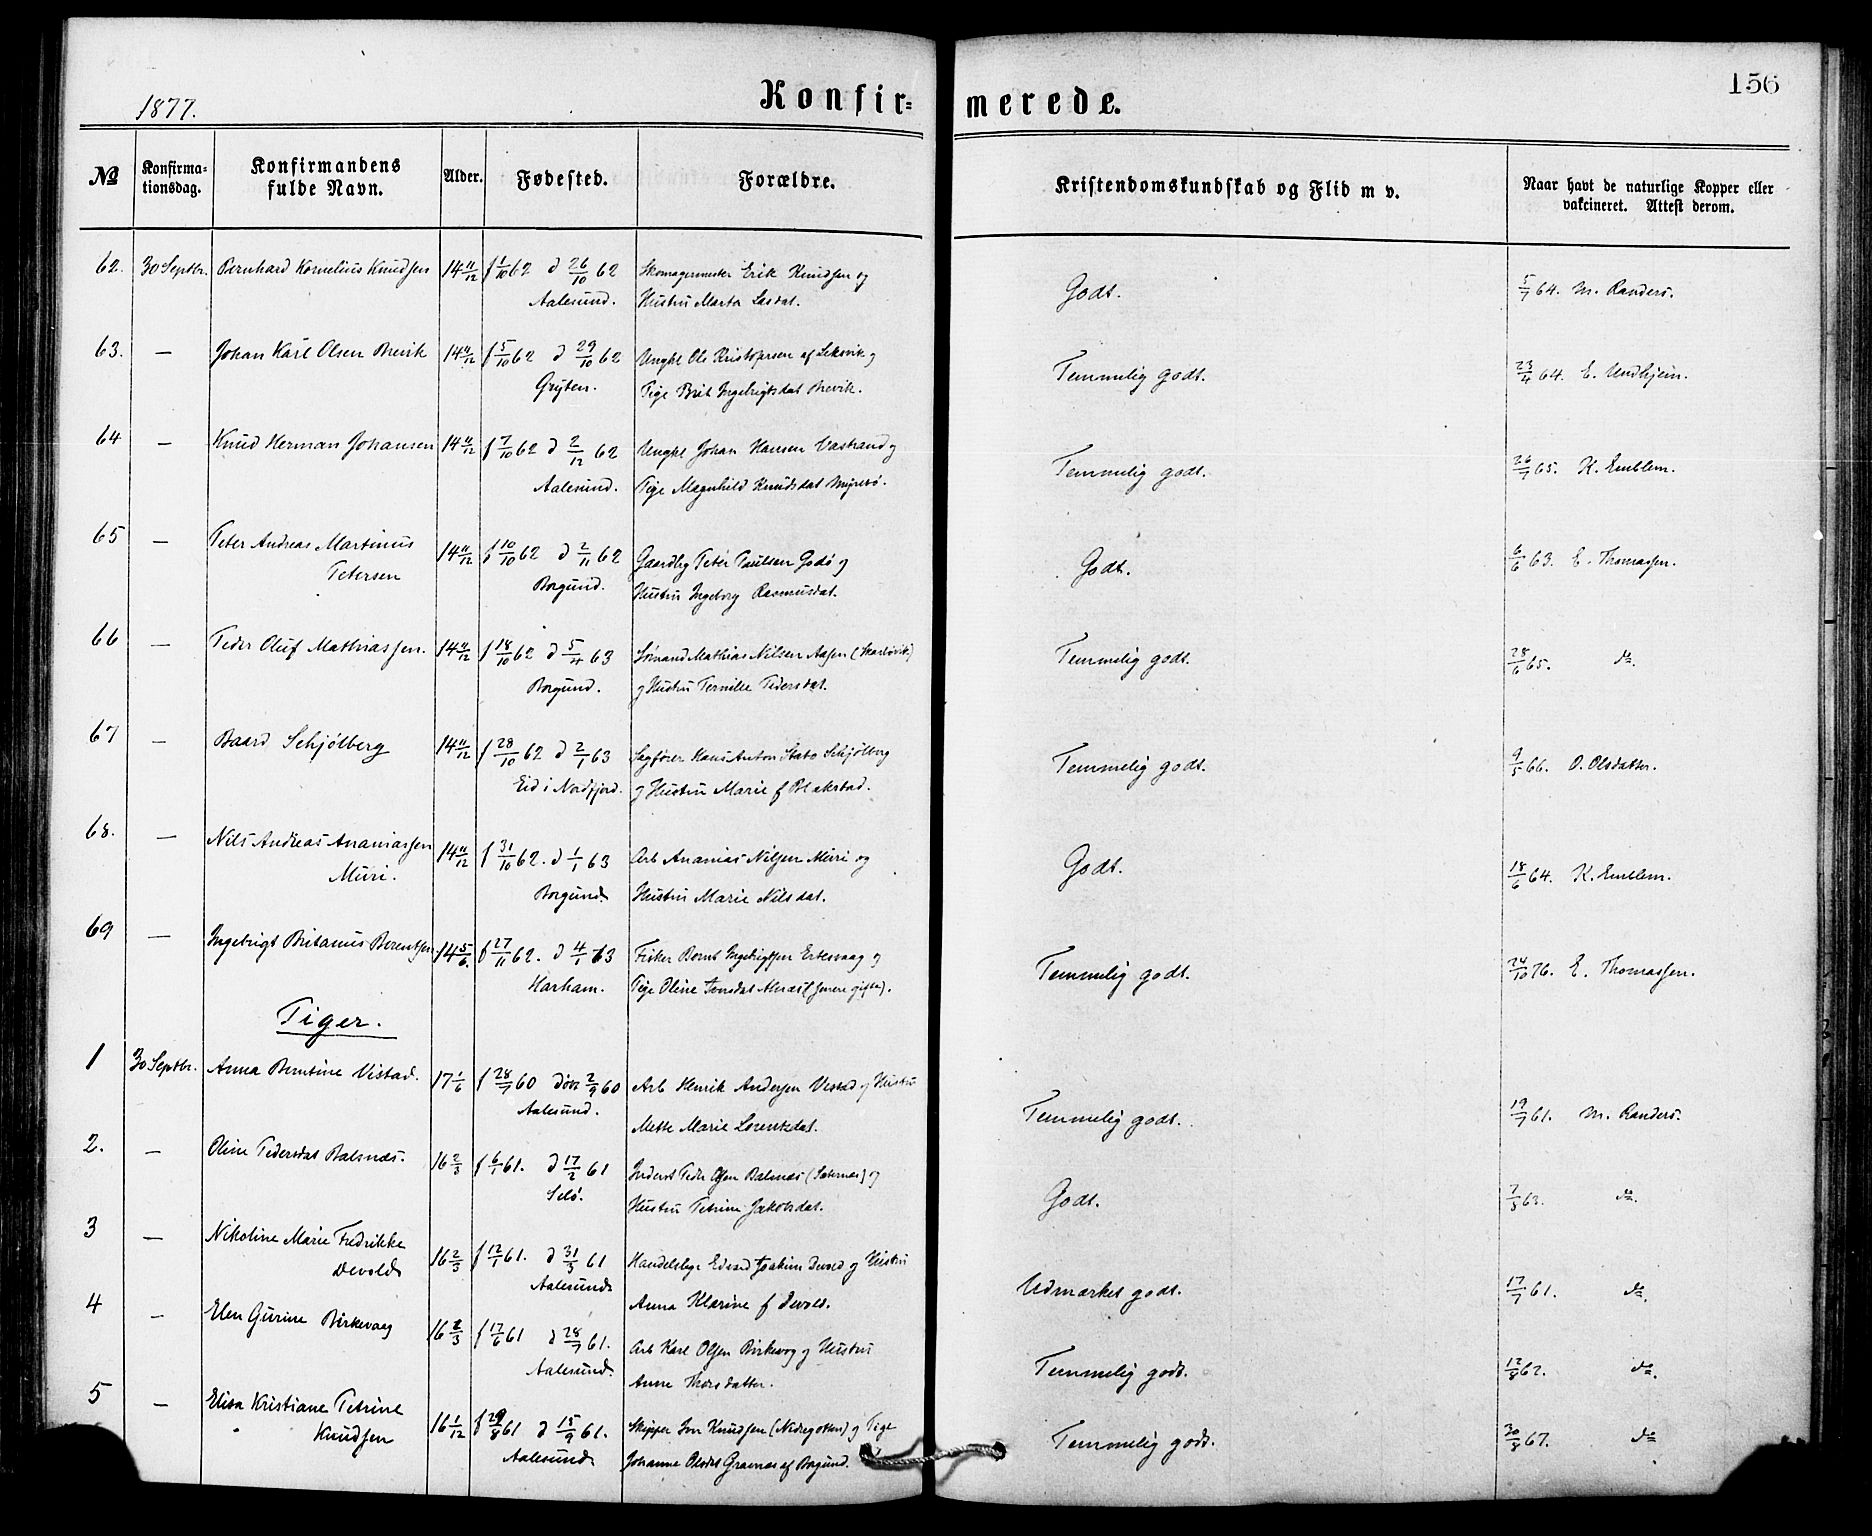 1877.
Konfir= merede.
156
No
Konfirma-
tionsdag.
Konfirmandens
fulde Navn.
Alder.
Fødested.
Forældre.
Kristendomskundskab og Flid m v.
Naar havt de naturlige Kopper eller
vakcineret. Attest derom.
62. 30 Septbr. Bernhard Kornelius Knudsen 14 11/12 f 1/10 62 d 26/10 62 Skomagermester Erik Knudsen og
Aalesund. Hustru Marta Lasdat. Godt. 5/7 64. M. Randers.
63. — Johan Karl Olsen Brevik 14 11/12 f 5/10 62 d 29/10 62 Ungkl Ole Kristofersen af Leksvik og
Gryten. Pige Brit Ingebrigtsdat Brevik. Temmelig godt. 23/4 64. E. Undhjem.
64 — Knud Herman Johansen 14 11/12 f 7/10 62 d 2/12 62 Ungkl Johan Hansen Vastrand og
Aalesund. Pige Magnhild Knudsdat Myrebø. Temmelig godt. 26/7 65. K. Emblem.
65 — Peter Andreas Martinus 14 11/12 f 10/10 62 d 2/11 62 Gaardbg Peter Paulsen Godø og
Petersen Borgund. Hustru Ingeborg Rasmusdat. Godt. 6/6 63. E. Thomassen.
66 — Peder Oluf Mathiassen. 14 11/12 f 18/10 62 d 5/4 63 Sømand Mathias Nilsen Aasen (Skarbøvik)
Borgund. og Hustru Pernille Pedersdat. Temmelig godt. 28/6 65. do.
67 — Baard Schjølberg 14 11/12 f 28/10 62 d 2/1 63 Sagfører Hans Anton Stabo Schjølberg
Eid i Nordfjord. og Hustru Marie f Blakstad. Temmelig godt. 9/5 66. O. Olsdatter.
68. — Nils Andreas Ananiassen 14 11/12 f 31/10 62. d 1/1 63 Arb Ananias Nilsen Muri og
Muri. Borgund. Hustru Marie Nilsdat. Godt. 18/6 64. K. Emblem.
69 — Ingebrigt Britanus Berentsen 14 5/6. f 27/11 62. d 4/1 63 Fisker Bernt Ingebrigtsen Ertesvaag og
Harham. Pige Oline Jensdat (senere gifte). Temmelig godt. 24/10 76. E. Thomassen.
Piger.
1 30 Septbr. Anna Berntine Vistad. 17 1/6 f 28/7 60 døbt 2/9 60 Arb Henrik Andersen Vestad og Hustru
Aalesund. Mette Marie Lorentzdat. Temmelig godt. 19/7 61. M. Randers.
2. — Oline Pedersdat Balsnæs. 16 2/3 f 6/1 61. d 17/2 61 Inderst Peder Olsen Balsnæs og
Selø. Hustru Petrine Jakobsdat. Godt. 7/5 63. do.
3 — Nikoline Marie Fredrikke 16 2/3 f 12/1 61. d 31/3 61 Handelsbge Edvard Joakim Devold og Hustru
Devold Aalesund Anna Klarine f Devold. Udmærket godt. 17/7 61. do.
4 — Elen Gurine Birkevaag 16 2/3 f 17/6 61 d 28/7 61. Arb Karl Olsen Birkevog og Hustru
Aalesund. Anne Thorsdatter. Temmelig godt. 12/8 62. do.
5 — Elisa Kristiane Petrine 16 1/12 f 29/8 61 d 15/9 61. Skipper Iver Knudsen (Nedregotten) og Pige
Knudsen Aalesund Johanne Olsdat Gravnæs af Borgund. Temmelig godt. 30/8 67. do